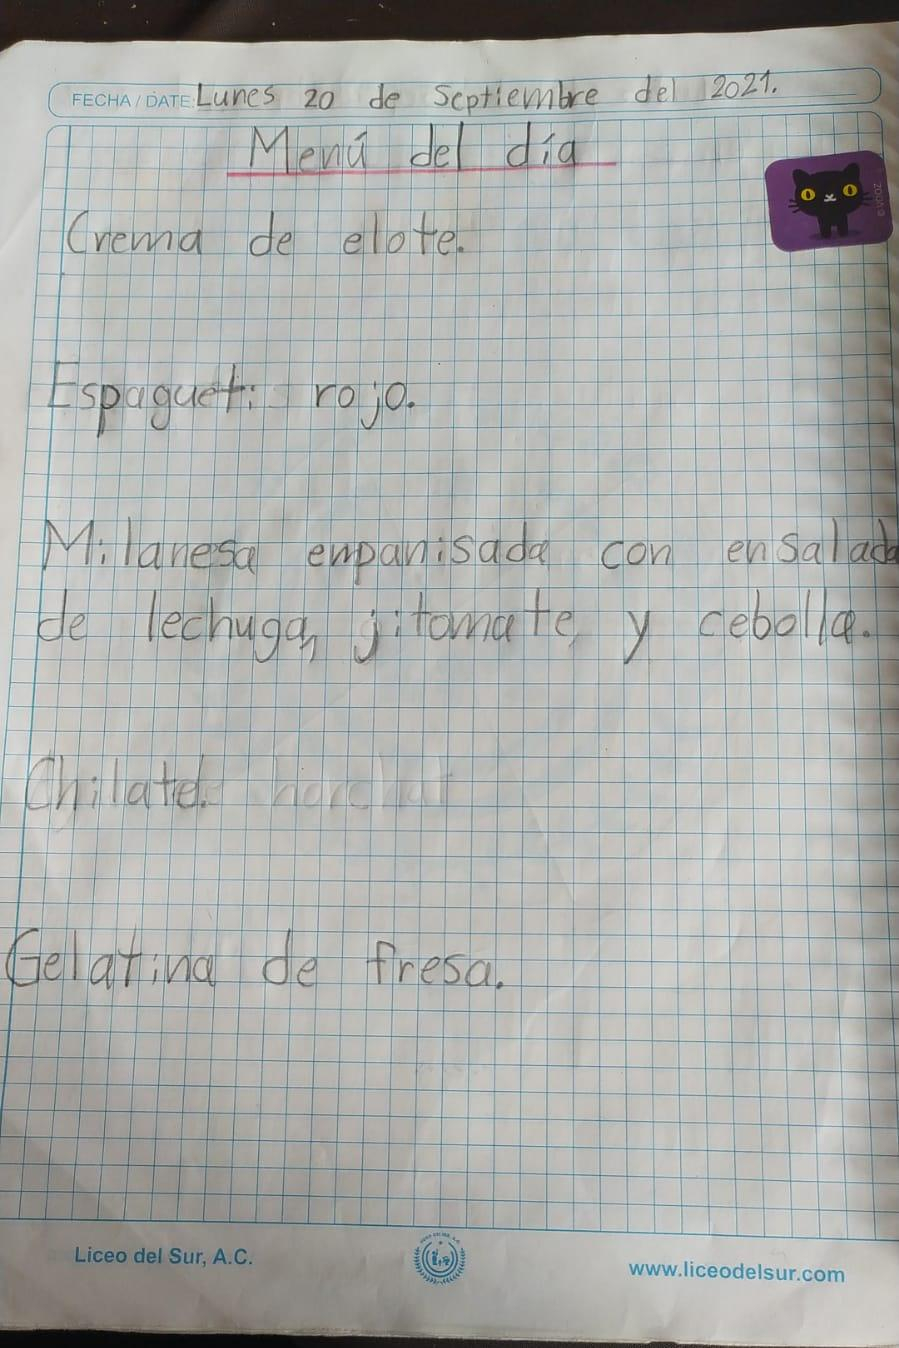 FECHA / DATE: Lunes 20 de Septiembre del 2021.
Menú del día
Crema de elote.
Espagueti rojo.
Milanesa enpanisada con ensalada
de lechuga, jitomate, y cebolla.
Chilate.
Gelatina de fresa.
Liceo del Sur, A.C.
www.liceodelsur.com
© VOOZ